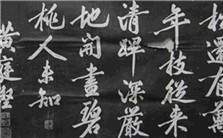 年枝從来
清暉深嚴
地開畫碧
桃人未知
黄庭堅